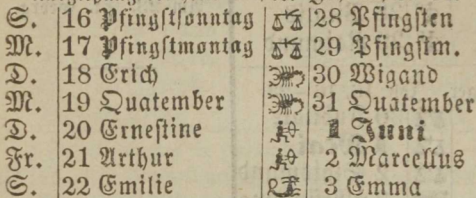 S. 16 Pfingstsonntag 28 Pfingsten
M. 17 Pfingstmontag 29 Pfingstm.
D. 18 Erich 30 Wigand
M. 19 Quatember 31 Quatember
D. 20 Ernestine 1 Juni
Fr. 21 Arthur 2 Marcellus
S. 22 Emilie 3 Emma